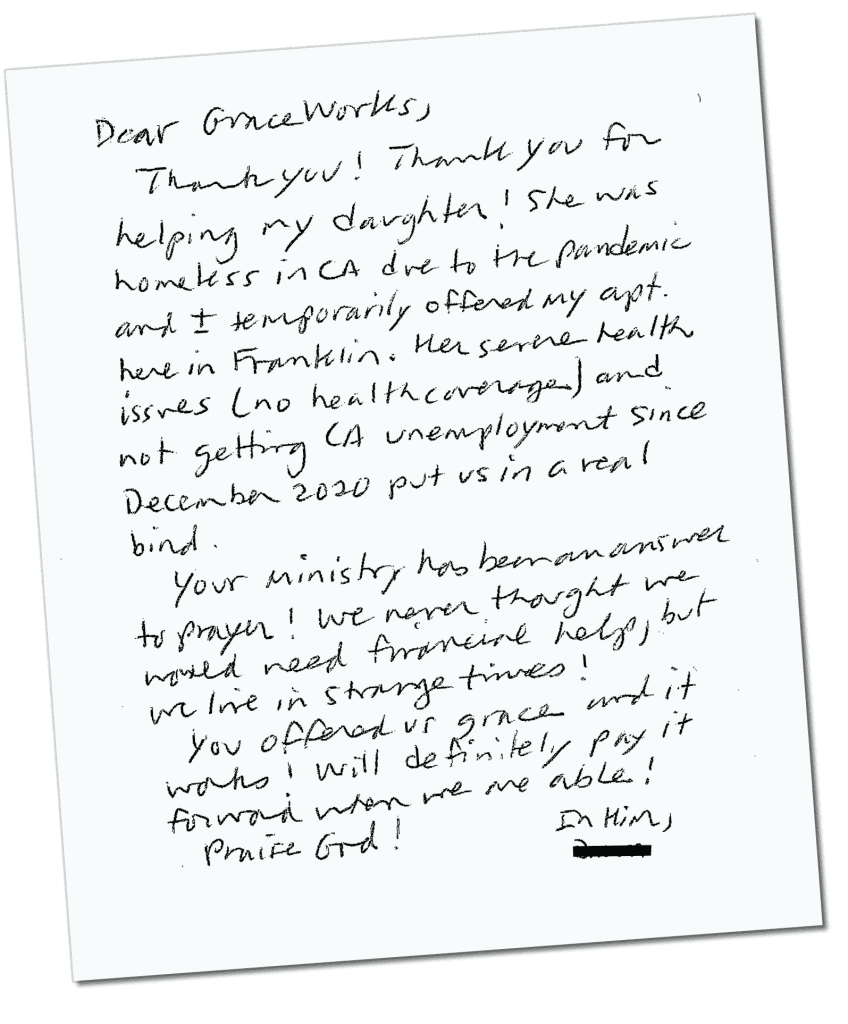 Dear GraceWorks,
Thank you! Thank you for
helping my daughter! She was
homeless in CA due to the pandemic
and I temporarily offered my apt.
here in Franklin. Her severe health
issues (no health coverage) and
not getting CA unemployment since
December 2020 put us in a real
bind.
Your ministry has been an answer
to prayer! We never thought we
would need financial help, but
we live in strange times!
You offered us grace and it
works! Will definitely pay it
forward when we are able!
Praise God!
In Him,